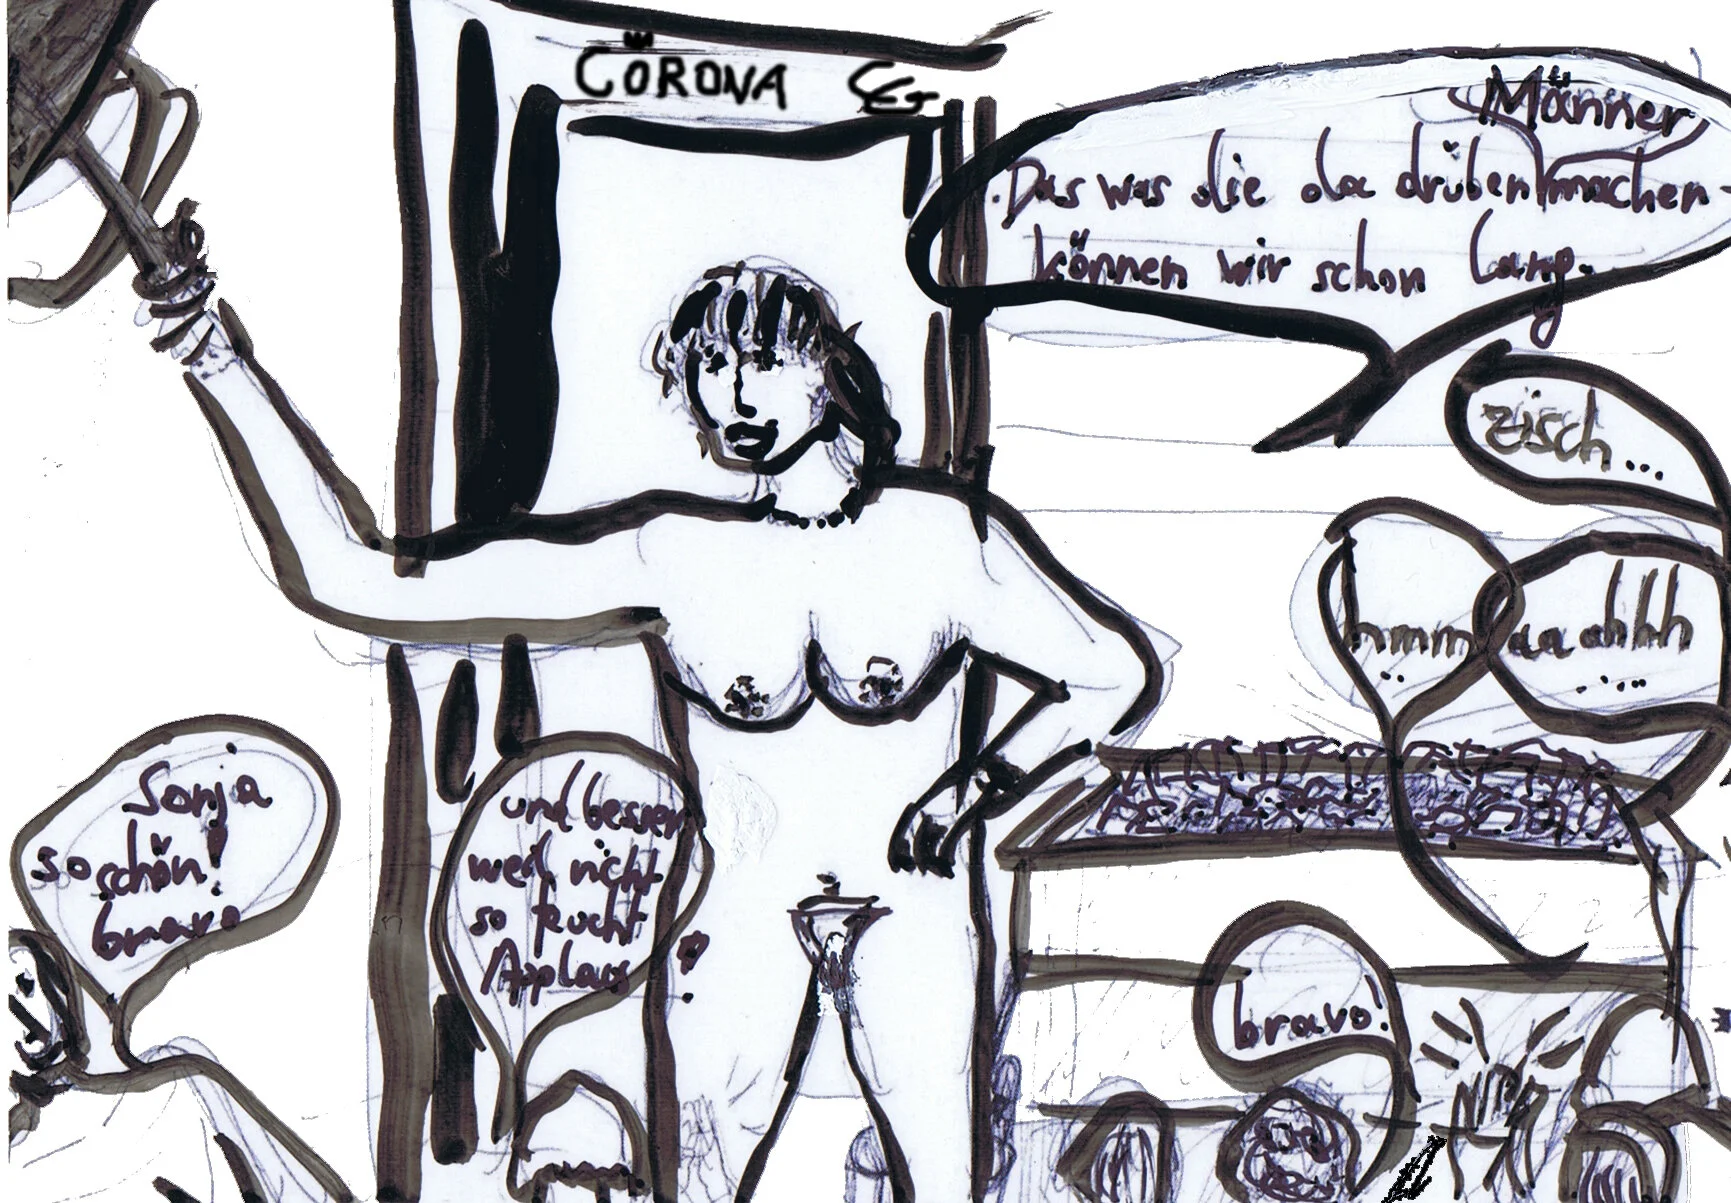 CORONA CG
Männer
Das was die da drüben machen
können wir schon lang.
zisch...
hmm
aaahhh
...
Sonja
so schön!
bravo
und besser
weil nicht
so feucht
Applaus!
bravo!